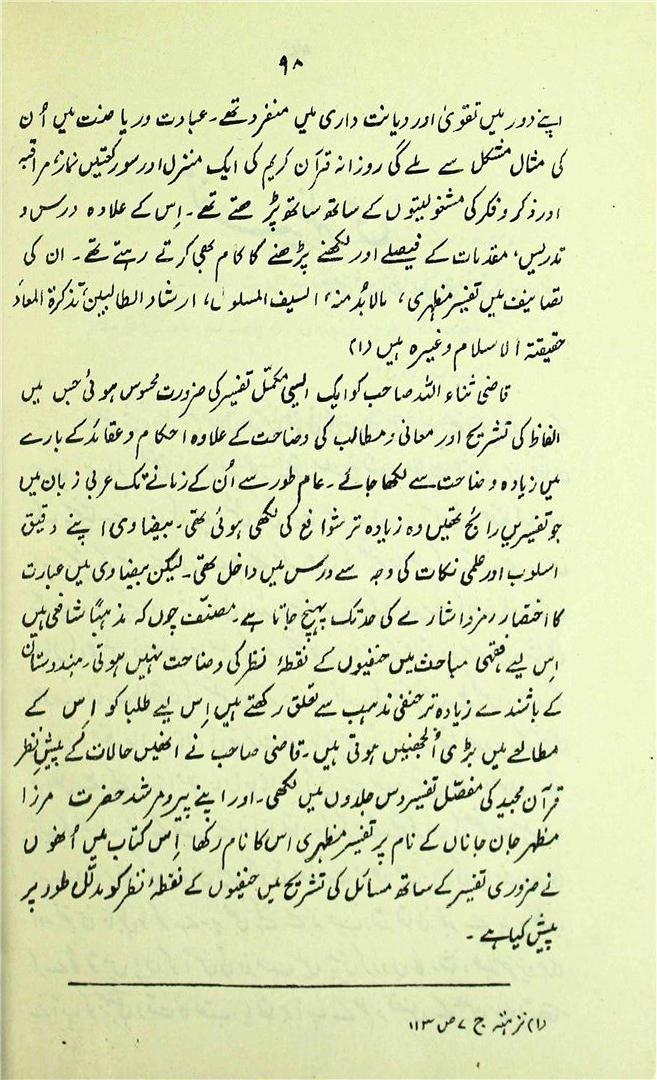 ۹۸
اپنے دور میں تقویٰ اور دیانت داری میں منفرد تھے۔ عبادت و ریاضت میں اُن
کی مثال مشکل سے ملے گی روزانہ قرآن کریم کی ایک منزل اور سو رکعتیں نماز، مراقبہ
اور ذکر و فکر کی مشغولیتوں کے ساتھ ساتھ پڑھتے تھے۔ اِس کے علاوہ درس و
تدریس، مقدمات کے فیصلے اور لکھنے پڑھنے کا کام بھی کرتے رہتے تھے۔ ان کی
تصانیف میں تفسیر مظہری، مالابُدمنہ، السیف المسلول، ارشاد الطالبین، تذکرۃ المعاد
حقیقتہ الاسلام وغیرہ ہیں (۱)
قاضی ثناء اللہ صاحب کو ایک ایسی مکمّل تفسیر کی ضرورت محسوس ہوئی جس میں
الفاظ کی تشریح اور معانی و مطالب کی وضاحت کے علاوہ احکام و عقائد کے بارے
میں زیادہ وضاحت سے لکھا جائے۔ عام طور سے اُن کے زمانے تک عربی زبان میں
جو تفسیریں رائج تھیں وہ زیادہ تر شوافع کی لکھی ہوئی تھی۔ بیضاوی اپنے دقیق
اسلوب اور علمی نکات کی وجہ سے درس میں داخل تھی۔ لیکن بیضاوی میں عبارت
کا اختصار رمز و اشارے کی حد تک پہنچ جاتا ہے۔ مصنّف چوں کہ مذہباً شافعی ہیں
اس لیے فقہی مباحث میں حنفیوں کے نقطۂ نظر کی وضاحت نہیں ہوتی۔ ہندوستان
کے باشندے زیادہ تر حنفی مذہب سے تعلق رکھتے ہیں اِس لیے طلبا کو اِس کے
مطالعے میں بڑی اُلجھنیں ہوتی ہیں۔ قاضی صاحب نے انھیں حالات کے پیشِ نظر
قرآن مجید کی مفصّل تفسیر دس جلدوں میں لکھی۔ اور اپنے پیر و مرشد حضرت مرزا
مظہر جان جاناں کے نام پر تفسیر مظہری اس کا نام رکھا اِس کتاب میں اُنھوں
نے ضروری تفسیر کے ساتھ مسائل کی تشریح میں حنفیوں کے نقطۂ نظر کو مدلّل طور پر
پیش کیا ہے۔
(۱) نزہتہ ج ۷ ص ۱۱۳